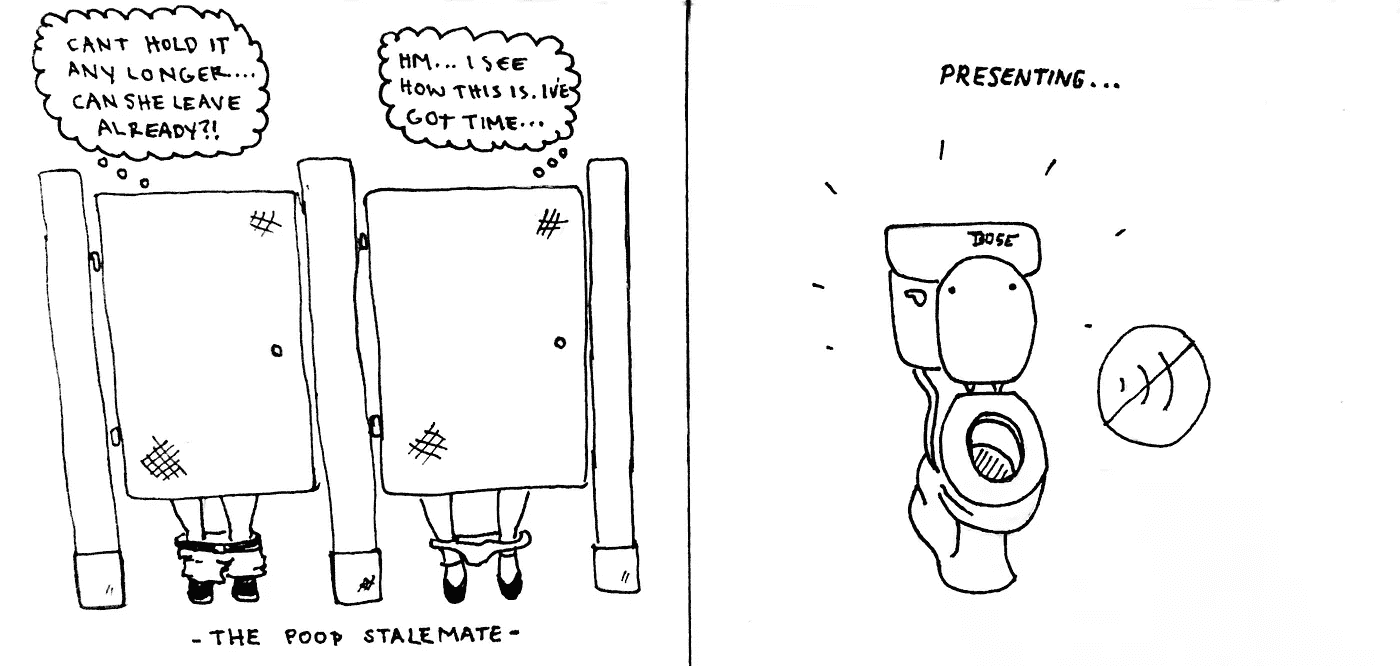 CANT HOLD IT
ANY LONGER...
CAN SHE LEAVE
ALREADY?!
HM... I SEE
HOW THIS IS. I'VE
GOT TIME...
- THE POOP STALEMATE -
PRESENTING...
BOSE